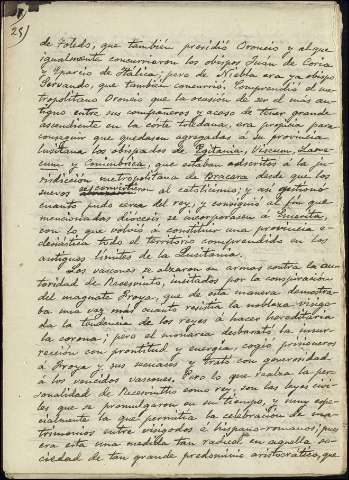 25)
de Toledo, que tambien presidió Oroncio y al que
igualmente concurrieron los obispos Juan de Coria
y Esparcio de Itálica; pero de Niebla era ya obispo
Servando, que tambien concurrió. Comprendió el me-
tropolitano Oroncio que la ocasion de ser el mas an-
tiguo entre sus compañeros y acaso de tener grande
ascendiente en la corte toledana, era propicia para
conseguir que quedasen agregadas á su provincia
lusitana los obispados de Egitania, Viseum, Lame-
cum y Conimbrica, que estaban adscritos á la ju-
risdiccion metropolitana de Bracara desde que los
suevos se convirtieron al catolicismo; y asi gestionó
cuanto pudo cerca del rey, y consiguió al fin que
mencionadas diócesis se incorporasen á Emerita,
con lo que volvió á constituir una provincia e-
clesiástica todo el territorio comprendido en los
antiguos limites de la Lusitania.
Los vascones se alzaron en armas contra la au-
toridad de Recesvinto, incitados por la conspiracion
del magnate Froya, que de esta manera demostra-
ba una vez mas cuanto resistia la nobleza visigo-
da la tendencia de los reyes á hacer hereditaria
la corona; pero el monarca desbarató la insur-
reccion con prontitud y energia, cogió prisioneros
á Froya y sus secuaces y trató con generosidad
á los vencidos vascones. Pero lo que realza la per-
sonalidad de Recesvintho como rey, son las leyes civi-
les que se promulgaron en su tiempo, y muy espe-
cialmente la que permitia la celebracion de ma-
trimonios entre visigodos é hispano-romanos; pues
era esta una medida tan radical en aquella so-
ciedad de tan grande predominio aristocrático, que